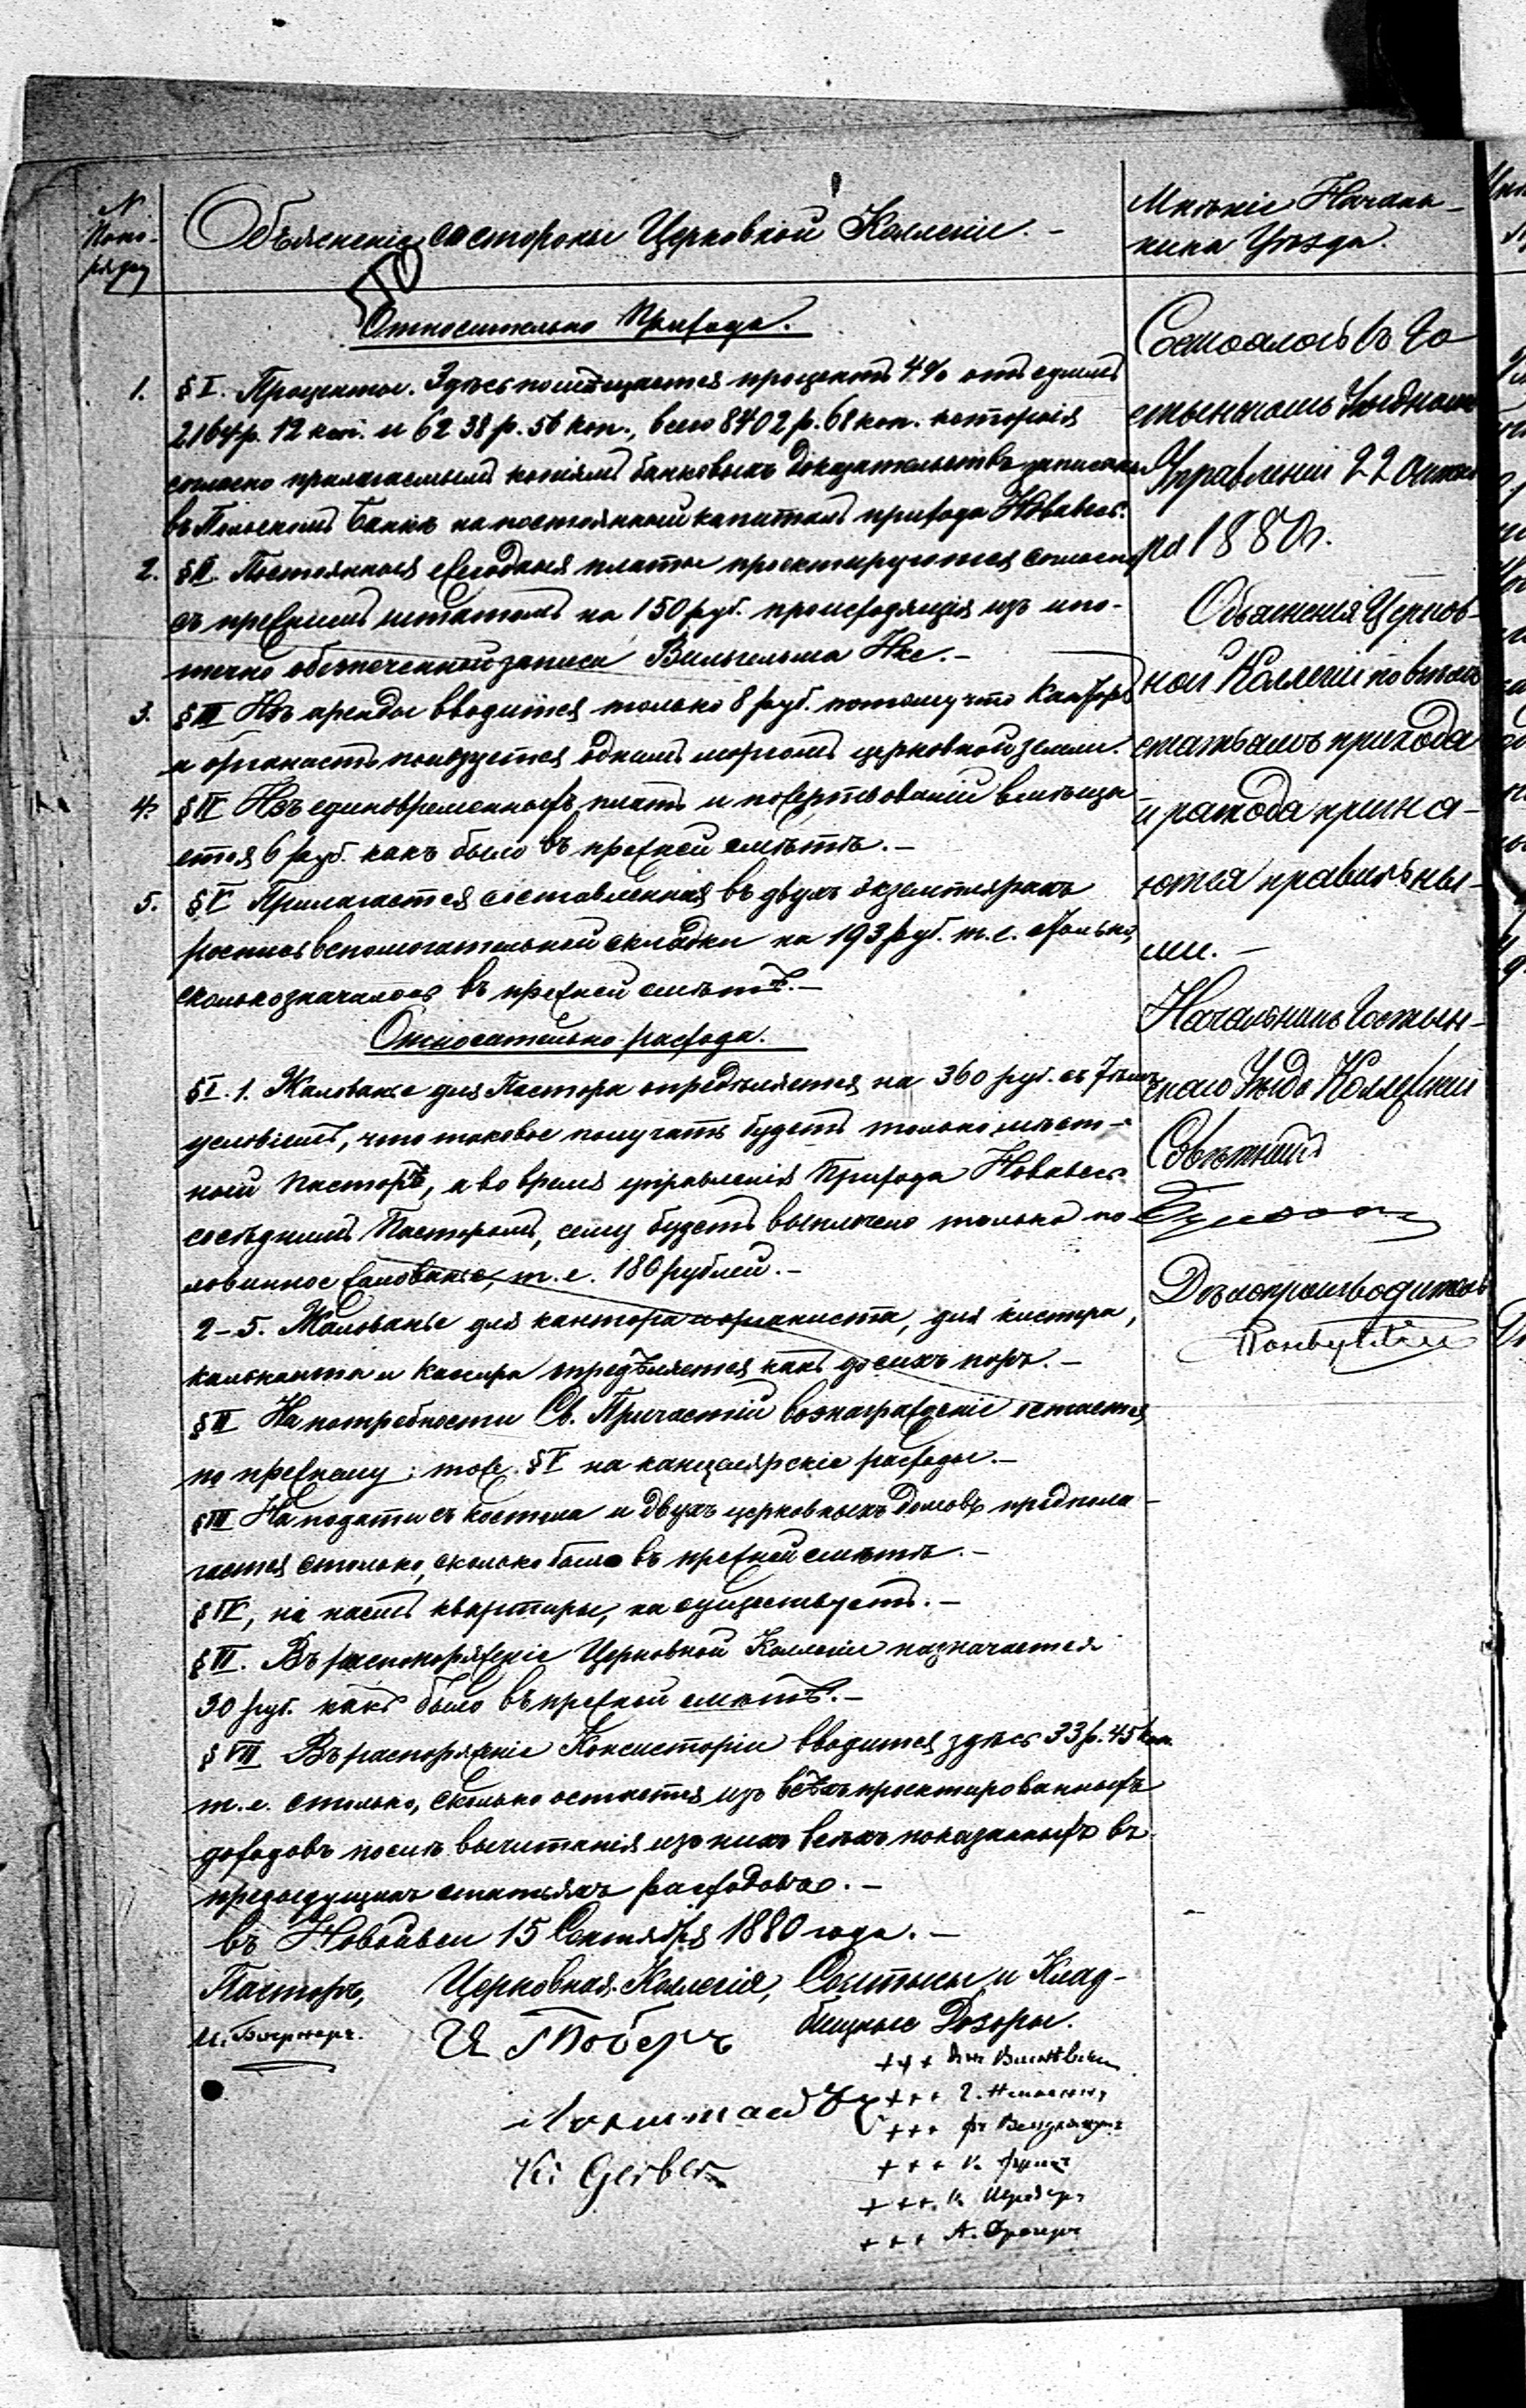 N
Поно-
рядку
Объясненіе со стороны Церковной Коллегіи. -
Мнѣніе Началь-
ника Уѣзда.
Относительно Прихода.
1. § I. Проценты. Здѣсь помѣщается процентъ 4% отъ суммъ
2164 р. 12 коп. и 6238 р. 56 коп., всего 8402 р. 68 коп. которыя
согласно прилагаемымъ копіямъ банковыхъ доказательствъ записаны
въ Польскомъ Банкѣ на постоянный капиталъ прихода Новавесь.
2. § II. Постоянныя ежегодныя платы проектируются согласно
съ прежнимъ штатомъ на 150 руб. происходящія изъ ипо-
течно обезпеченной записи Вильгельма Нке. -
3. § III Изъ аренды вводится только 8 руб. потому что Канторъ
и органистъ пользуется однимъ моргомъ церковной земли.
4. § IV Изъ единовременныхъ платъ и пожертвованій вмѣща
ется 6 руб. какъ было въ прежней смѣтѣ. -
5. § V Прилагается составленная въ двухъ экземплярахъ
роспись вспомогательной складки на 193 руб. т.е. столько,
сколько значилось въ прежней смѣтѣ. -
Относительно расхода.
§ I. 1. Жалованье для Пастора опредѣляется на 360 руб. съ тѣмъ
условіемъ, что таковое получать будетъ только мѣст-
ный Пасторъ, а во время управленія Прихода Новавесь
сосѣднимъ Пасторомъ, сему будетъ выплачено только по
ловинное жалованье, т.е. 180 рублей. -
2-5. Жалованье для кантора и органиста, для кистера,
кальканта и Кассира опредѣляется какъ до сихъ поръ. -
§ II На потребности Св. Причастій вознагражденіе остается
по прежнему; тоже § V на канцелярскіе расходы. -
§ III На подати съ костела и двухъ церковныхъ домовъ предпола-
гается столько, сколько было въ прежней смѣтѣ. -
§ IV, на наемъ квартиры, не существуетъ. -
§ VI. Въ распоряженіе Церковной Коллегіи назначается
30 руб. какъ было въ прежней смѣтѣ. -
§ VII Въ распоряженіе Консисторіи вводится здѣсь 33 р. 45 коп.
т.е. столько, сколько остается изъ всѣхъ проектированныхъ
доходовъ послѣ вычитанія изъ нихъ всѣхъ показанныхъ въ
предыдущихъ статьяхъ расходовъ. -
въ Новейвси 15 Сентября 1880 года. -
Пасторъ, Церковная Коллегія, Солтысы и Клад-
бищные Дозоры.
K. Gerber
Состоялось въ Го
стынскомъ Уѣздномъ
Управленіи 22 Октяб
ря 1880 г.
Объясненія Церков-
ной Коллегіи по всѣмъ
статьямъ прихода
и расхода призна-
ются правильны-
ми. -
Начальникъ Гостын-
скаго Уѣзда Коллежскій
Совѣтникъ
Дѣлопроизводитель